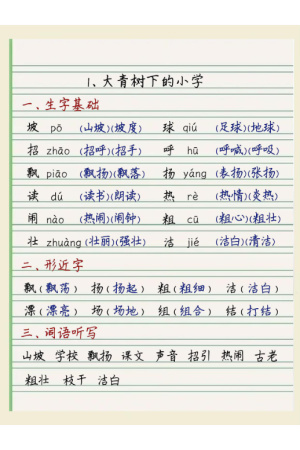 1、大青树下的小学
一、生字基础
坡 pō (山坡)(坡度) 球 qiú (足球)(地球)
招 zhāo (招呼)(招手) 呼 hū (呼喊)(呼吸)
飘 piāo (飘扬)(飘落) 扬 yáng (表扬)(张扬)
读 dú (读书)(朗读) 热 rè (热情)(炎热)
闹 nào (热闹)(闹钟) 粗 cū (粗心)(粗壮)
壮 zhuàng (壮丽)(强壮) 洁 jié (洁白)(清洁)
二、形近字
飘(飘荡) 扬(扬起) 粗(粗细) 洁(洁白)
漂(漂亮) 场(场地) 组(组合) 结(打结)
三、词语听写
山坡 学校 飘扬 课文 声音 招引 热闹 古老
粗壮 枝干 洁白